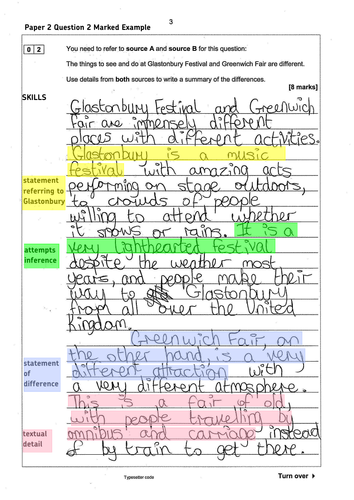 3
Paper 2 Question 2 Marked Example
0 2
You need to refer to source A and source B for this question:
The things to see and do at Glastonbury Festival and Greenwich Fair are different.
Use details from both sources to write a summary of the differences.
[8 marks]
SKILLS
Glastonbury Festival and Greenwich
Fair are immensely different
places with different activities.
Glastonbury is a music
festival with amazing acts
statement referring to Glastonbury
performing on stage outdoors,
to crowds of people
willing to attend whether
it snows or rains. It is a
attempts inference
very lighthearted festival
despite the weather most
years, and people make their
way to Glastonbury
from all over the United
Kingdom.
Greenwich Fair, on
the other hand, is a very
statement of difference
different attraction with
a very different atmosphere.
This is a fair of old,
with people travelling by
textual detail
omnibus and carriage instead
of by train to get there.
Typesetter code
Turn over ►